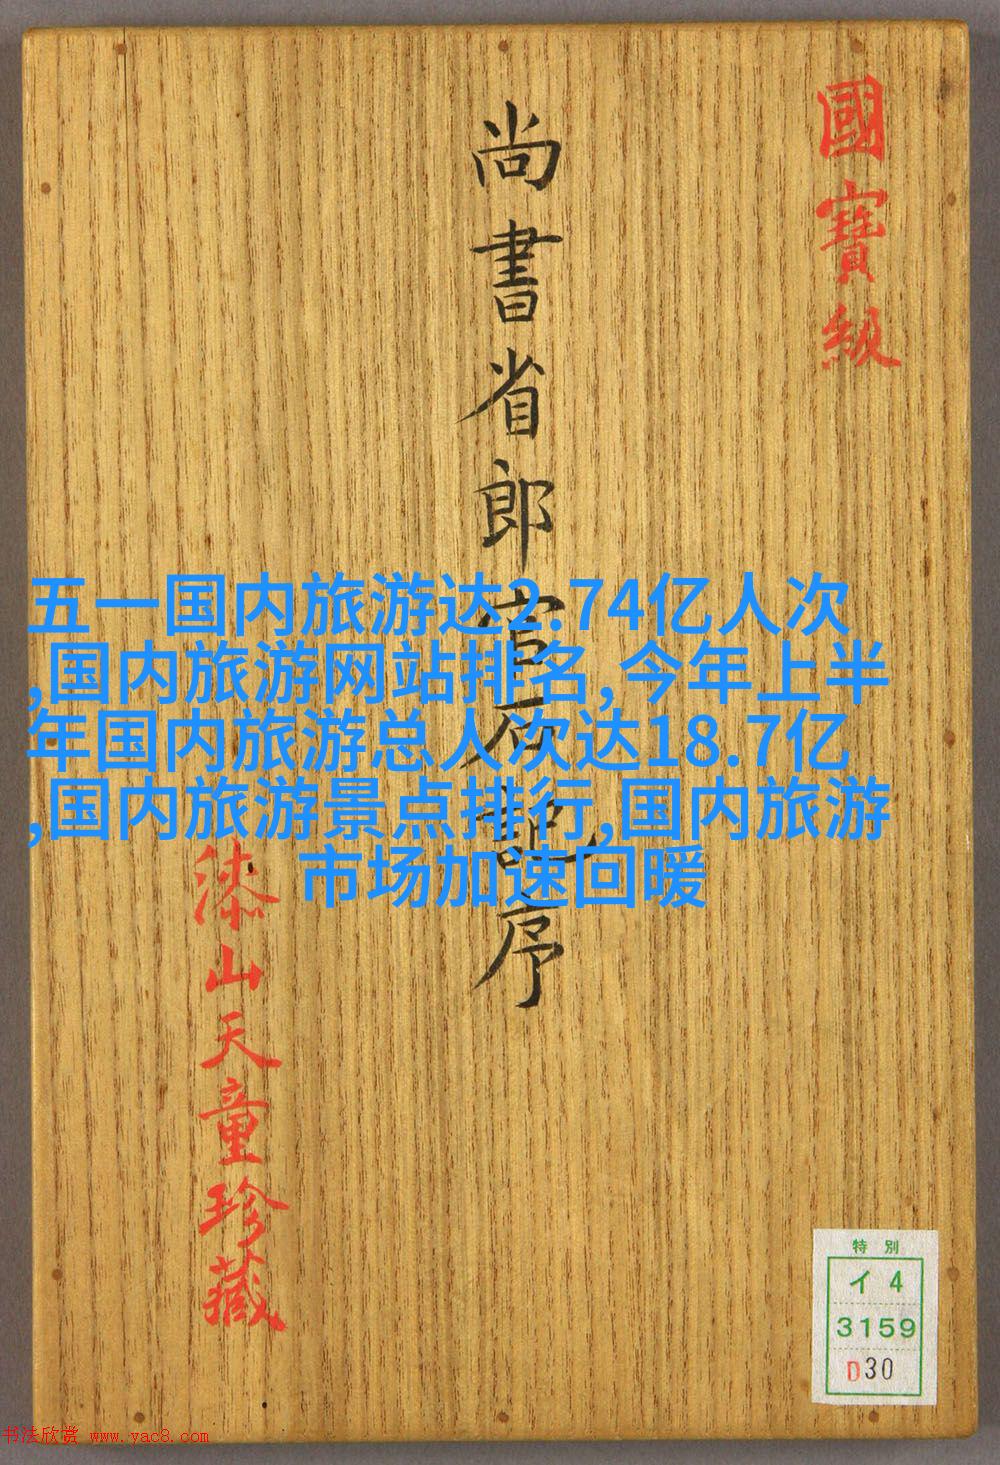 國寶級
尚書省郎官石記序
漆山天童珍藏
五一国内旅游达2.74亿人次
,国内旅游网站排名,今年上半
年国内旅游总人次达18.7亿
,国内旅游景点排行,国内旅游
市场加速回暖
特別
イ4
3159
D30
书法欣赏 www.yac8.com